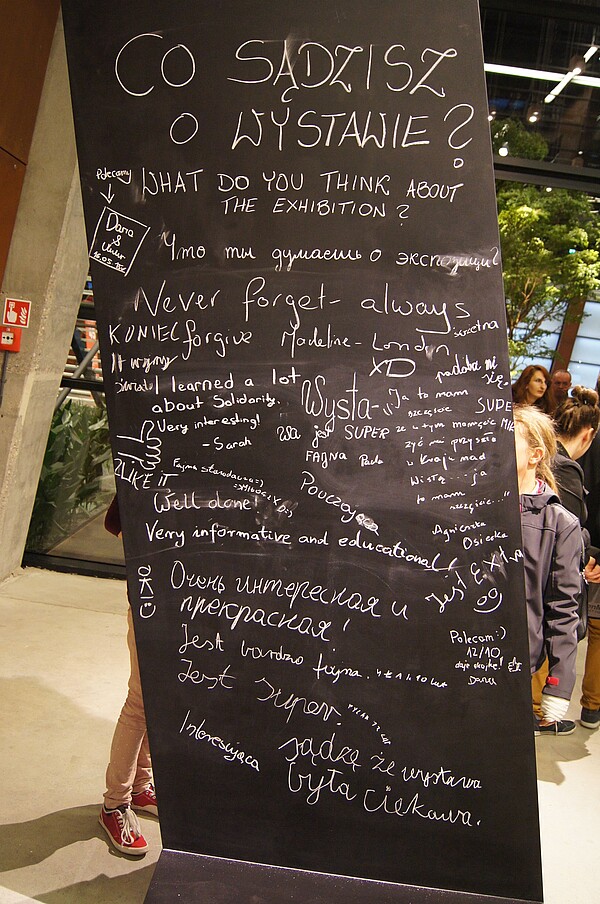 CO SĄDZISZ
O WYSTAWIE?
WHAT DO YOU THINK ABOUT
THE EXHIBITION?
Polecamy
Daria
&
Что ты думаешь о экспозиции?
Never forget - always
forgive Madeline - London
KONIEC
świetna
XD
podoba mi
się.
I learned a lot
about Solidarity.
Very interesting!
- Sarah
Wysta-
wa jest SUPER
FAJNA
"Ja to mam
szczęście
że w tym momencie
żyć mi przyszło
w kraju nad
Wisłą... ja
to mam
szczęście..."
Agnieszka
Osiecka
SUPE
LIKE iT
Fajna
Pouczająca
Well done!
Very informative and educational!
OK :)
Очень интересная и
прекрасная!
Jest Extra
Jest bardzo fajna.
Jest super.
Polecam :)
12/10
daje okejkę!
Daria
Interesująca
sądzę że wystawa
była ciekawa.